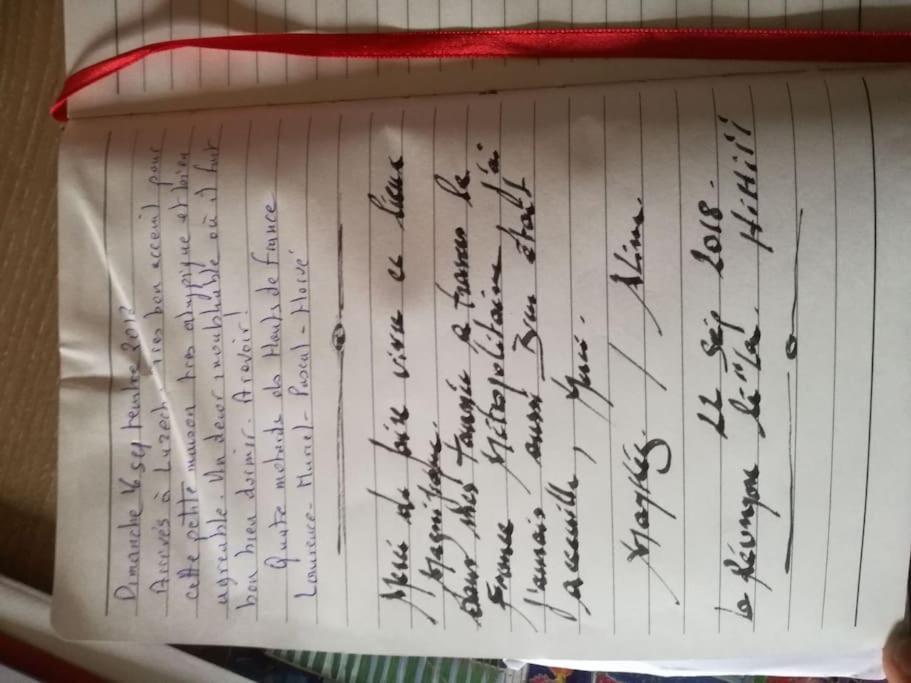 Dimanche 16 septembre 2018
Arrivés à Luzech, très bon acceuil pour
cette petite maison très atypique et bien
agréable. Un decor inoubliable où il fait
bon bien dormir. Arevoir!
Quatre motards des Hauts de France
Laurence - Muriel - Pascal - Hervé
Merci de faire vivre ce lieux
Magnifique.
Dans Mes Tournée a travers la
France Métropolitaine j'ai
Jamais aussi Bien était
accueilli, Merci
/ Aline.
22 Sep 2018.
La Réunyon lé la HiHiii